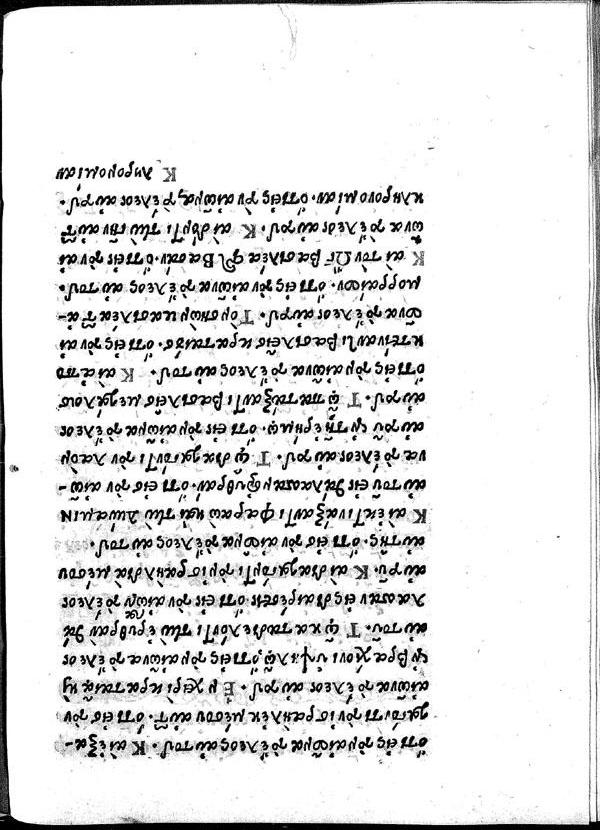 ὅτι εἰς τὸν αἰῶνα τὸ ἔλεος αὐτοῦ. Καὶ ἐξα-
γαγόντι τὸν ἰσραὴλ ἐκ μέσου αὐτῶν. ὅτι εἰς τὸν
αἰῶνα τὸ ἔλεος αὐτοῦ. Ἐν χειρὶ κραταιᾷ καὶ
ἐν βραχίονι ὑψηλῷ. ὅτι εἰς τὸν αἰῶνα τὸ ἔλεος
αὐτοῦ. Τῷ καταδιελόντι τὴν ἐρυθρὰν θά
λασσαν εἰς διαιρέσεις. ὅτι εἰς τὸν αἰῶνα τὸ ἔλεος
αὐτοῦ. Καὶ διαγαγόντι τὸν ἰσραὴλ διὰ μέσου
αὐτῆς. ὅτι εἰς τὸν αἰῶνα τὸ ἔλεος αὐτοῦ.
Καὶ ἐκτινάξαντι φαραὼ καὶ τὴν δύναμιν
αὐτοῦ εἰς θάλασσαν ἐρυθράν. ὅτι εἰς τὸν αἰῶ-
να τὸ ἔλεος αὐτοῦ. Τῷ διαγαγόντι τὸν λαὸν
αὐτοῦ ἐν τῇ ἐρήμῳ. ὅτι εἰς τὸν αἰῶνα τὸ ἔλεος
αὐτοῦ. Τῷ πατάξαντι βασιλεῖς μεγάλους
ὅτι εἰς τὸν αἰῶνα τὸ ἔλεος αὐτοῦ. Καὶ ἀπο
κτείναντι βασιλεῖς κραταιούς. ὅτι εἰς τὸν αἰ
ῶνα τὸ ἔλεος αὐτοῦ. Τὸν σηὼν βασιλέα τῶν ἀ-
μορραίων. ὅτι εἰς τὸν αἰῶνα τὸ ἔλεος αὐτοῦ.
Καὶ τὸν Ὢγ βασιλέα τῆς Βασάν. ὅτι εἰς τὸν αἰ
ῶνα τὸ ἔλεος αὐτοῦ. Καὶ δόντι τὴν γῆν αὐτῶν
κληρονομίαν. ὅτι εἰς τὸν αἰῶνα τὸ ἔλεος αὐτοῦ.
Κληρονομίαν